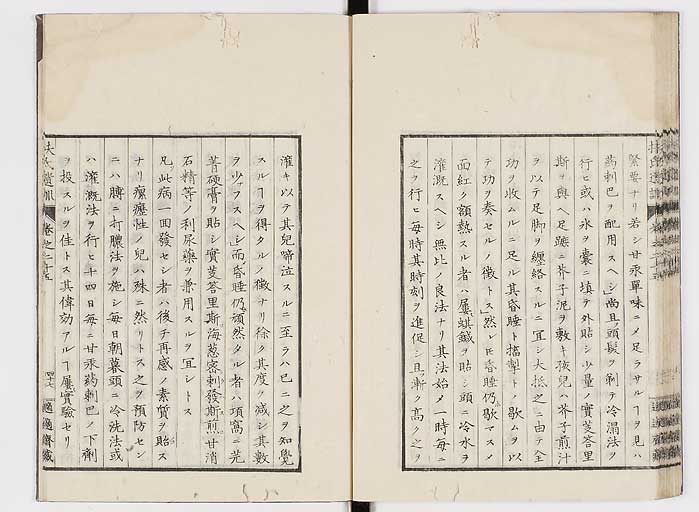 緊要ナリ若シ甘汞單味ニメ足ラサルヿヲ見ハ
葯刺巴ヲ配用スヘシ」尚且頭髮ヲ剃テ冷漏法ヲ
行ヒ或ハ氷ヲ嚢ニ填テ外貼シ少量ノ實芰荅里
斯ヲ與ヘ足蹠ニ芥子泥ヲ敷キ孩兒ハ芥子煎汁
ヲ以テ足脚ヲ纏絡スルニ宜シ大抵之ニ由テ全
功ヲ收ムルニ足ル其昏睡ト搐掣トノ歇ムヲ以
テ功ヲ奏セルノ徴トス」然レ𪜈昏睡仍歇マスメ
面紅ク額熱スル者ハ屢蜞鍼ヲ貼シ頭ニ冷水ヲ
灌溉スヘシ無比ノ良法ナリ其法始メ一時每ニ
之ヲ行ヒ每時其時刻ヲ進促シ且漸ク高ク之ヲ
灌キ以テ其兒啼泣スルニ至ラハ已ニ之ヲ知覺
スルヿヲ得タルノ徴ナリ徐ク其度ヲ減シ其數
ヲ少フスヘシ而昏睡仍頑然タル者ハ項窩ニ芫
菁硬膏ヲ貼シ實芰荅里斯海葱密剌發斯煎甘消
石精等ノ利尿藥ヲ兼用スルヲ宜シトス
凡此病一回發セシ者ハ後チ再感ノ素質ヲ貽ス
ナリ瘰癧性ノ兒ハ殊ニ然リトス之ヲ預防セン
ニハ膊ニ打膿法ヲ施シ每日朝暮頭ニ冷洗法或
ハ灌溉法ヲ行ヒ十四日每ニ甘汞葯刺巴ノ下劑
ヲ投スルヲ佳トス其偉効アルヿ屢實驗セリ
扶氏遺訓
卷之二十五
適適齋藏